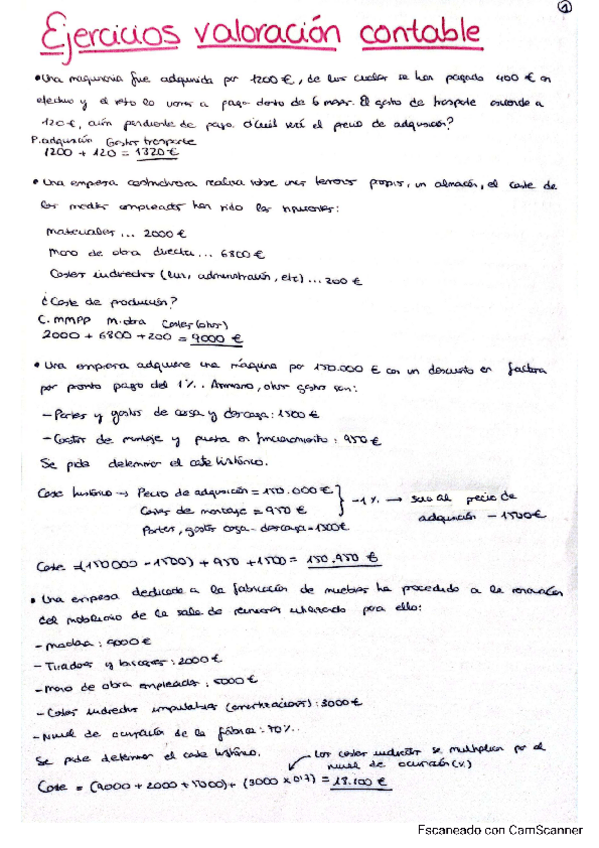 1
Ejercicios valoración contable
•Una maquinaria fue adquirida por 1200 €, de los cuales se han pagado 400 € en
efectivo y el resto lo vamos a pagar dentro de 6 meses. El gasto de trasporte asciende a
120 €, aún pendiente de pago. ¿Cuál será el precio de adquisición?
P.adquisición Gastos trasporte
1200 + 120 = 1320 €
• Una empresa constructora realiza sobre unos terrenos propios, un almacén, el coste de
los medios empleados han sido los siguientes:
materiales ... 2000 €
Mano de obra directa ... 6800 €
Costes indirectos (luz, administración, etc) ... 200 €
¿Coste de producción?
C. MMPP M.obra Costes (otros)
2000 + 6800 + 200 = 9000 €
• Una empresa adquiere una máquina por 150.000 € con un descuento en factura
por pronto pago del 1%. Asimismo, otros gastos son:
- Portes y gastos de carga y descarga: 1500 €
- Gastos de montaje y puesta en funcionamiento: 950 €
Se pide determinar el coste histórico.
Coste histórico → Precio de adquisición = 150.000 €
Gastos de montaje = 950 €
Portes, gastos carga-descarga = 1500 €
-1% → solo al precio de
adquisición - 1500 €
Coste = (150000 - 1500) + 950 + 1500 = 150.950 €
• Una empresa dedicada a la fabricación de muebles ha procedido a la renovación
del mobiliario de la sala de reuniones utilizando para ello:
- madera: 9000 €
- Tiradores y bisagras: 2000 €
- Mano de obra empleada: 5000 €
- Costes indirectos imputables (amortizaciones): 3000 €
- Nivel de ocupación de la fábrica: 70%.
Se pide determinar el coste histórico.
Los costes indirectos se multiplican por el
nivel de ocupación (%)
Coste = (9000 + 2000 + 5000) + (3000 x 0'7) = 18.100 €
Escaneado con CamScanner